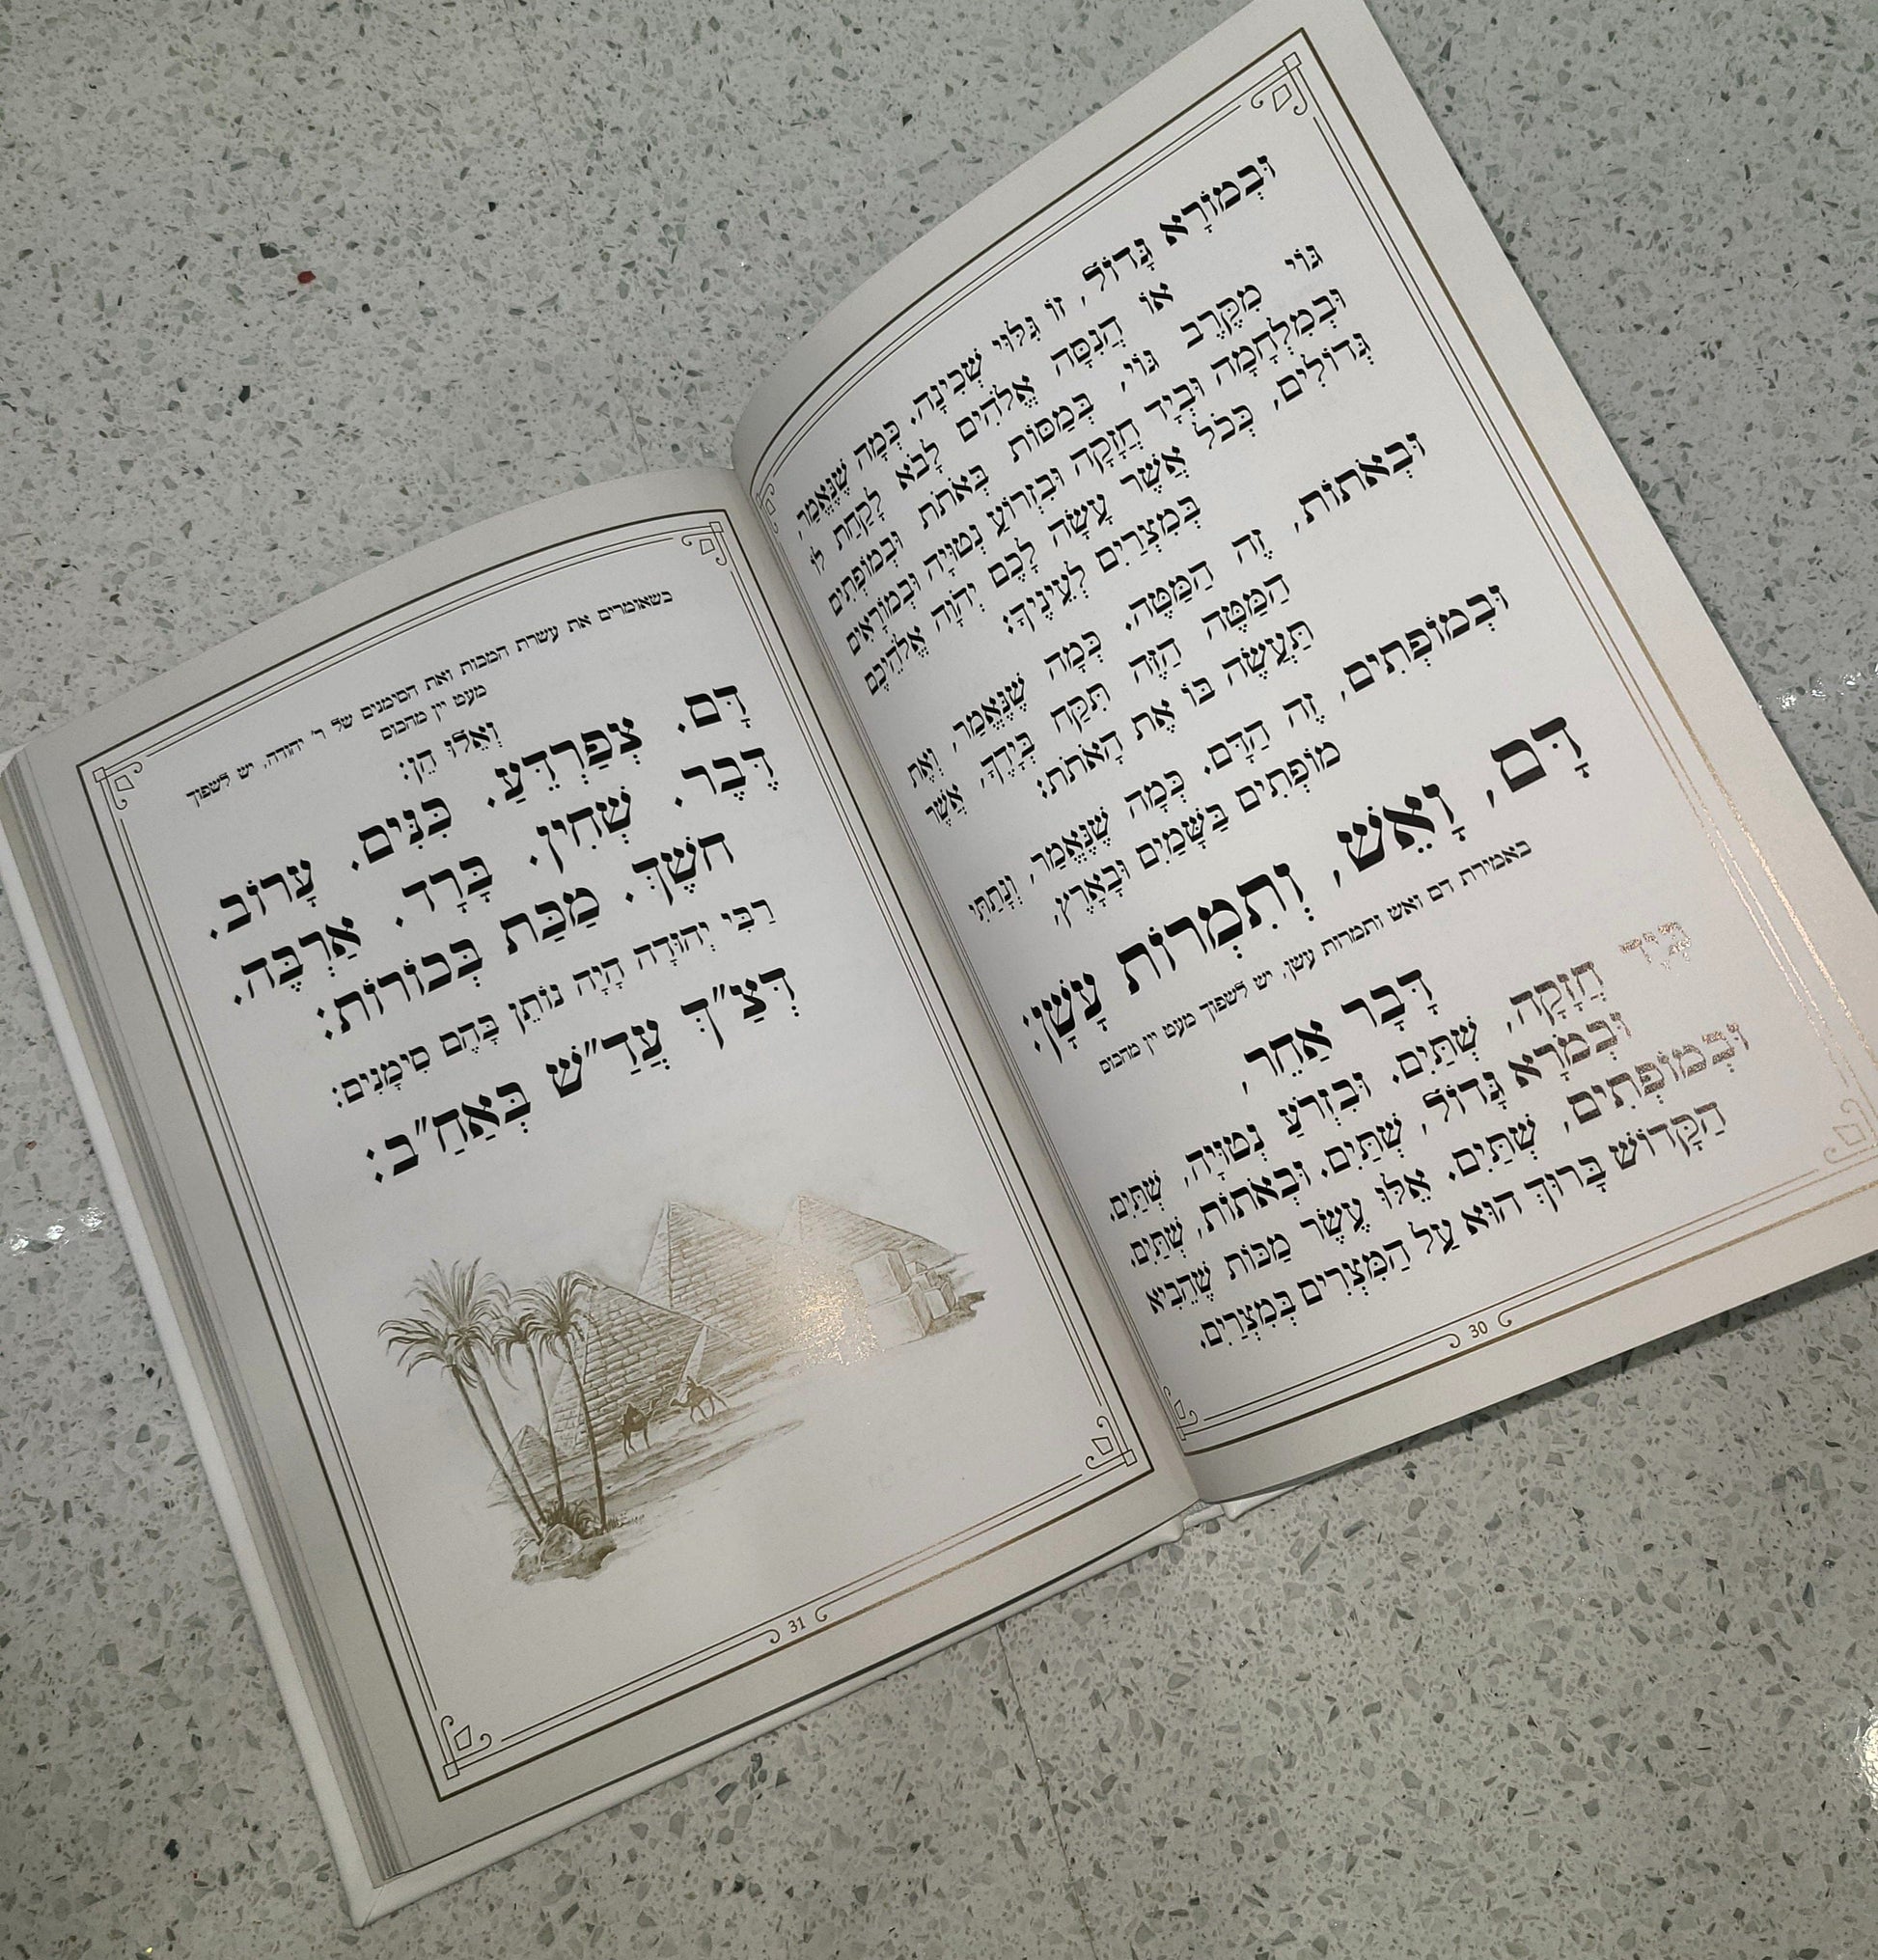 וּבְמוֹרָא גָּדוֹל, זוֹ גִּלּוּי שְׁכִינָה. כְּמָה שֶׁנֶּאֱמַר,
אוֹ הֲנִסָּה אֱלֹהִים לָבֹא לָקַחַת לוֹ
גּוֹי מִקֶּרֶב גּוֹי, בְּמַסּוֹת בְּאֹתֹת וּבְמוֹפְתִים
וּבְמִלְחָמָה וּבְיָד חֲזָקָה וּבִזְרוֹעַ נְטוּיָה וּבְמוֹרָאִים
גְּדוֹלִים, כְּכֹל אֲשֶׁר עָשָׂה לָכֶם יְהֹוָה אֱלֹהֵיכֶם
בְּמִצְרַיִם לְעֵינֶיךָ:
וּבְאֹתוֹת, זֶה הַמַּטֶּה. כְּמָה שֶׁנֶּאֱמַר, וְאֶת
הַמַּטֶּה הַזֶּה תִּקַּח בְּיָדֶךָ, אֲשֶׁר
תַּעֲשֶׂה בּוֹ אֶת הָאֹתֹת:
וּבְמוֹפְתִים, זֶה הַדָּם. כְּמָה שֶׁנֶּאֱמַר, וְנָתַתִּי
מוֹפְתִים בַּשָּׁמַיִם וּבָאָרֶץ,
דָּם, וָאֵשׁ, וְתִמְרוֹת עָשָׁן:
באמירת דם ואש ותמרות עשן, יש לשפוך מעט יין מהכוס
דָּבָר אַחֵר,
בְּיָד חֲזָקָה, שְׁתַּיִם. וּבִזְרֹעַ נְטוּיָה, שְׁתַּיִם.
וּבְמֹרָא גָּדוֹל, שְׁתַּיִם. וּבְאֹתוֹת, שְׁתַּיִם.
וּבְמוֹפְתִים, שְׁתַּיִם. אֵלּוּ עֶשֶׂר מַכּוֹת שֶׁהֵבִיא
הַקָּדוֹשׁ בָּרוּךְ הוּא עַל הַמִּצְרִים בְּמִצְרַיִם.
30
כשאומרים את עשרת המכות ואת הסימנים של ר' יהודה, יש לשפוך
מעט יין מהכוס
וְאֵלּוּ הֵן:
דָּם. צְפַרְדֵּעַ. כִּנִּים. עָרוֹב.
דֶּבֶר. שְׁחִין. בָּרָד. אַרְבֶּה.
חֹשֶׁךְ. מַכַּת בְּכוֹרוֹת:
רַבִּי יְהוּדָה הָיָה נוֹתֵן בָּהֶם סִימָנִים:
דְּצַ"ךְ עֲדַ"שׁ בְּאַחַ"ב:
31